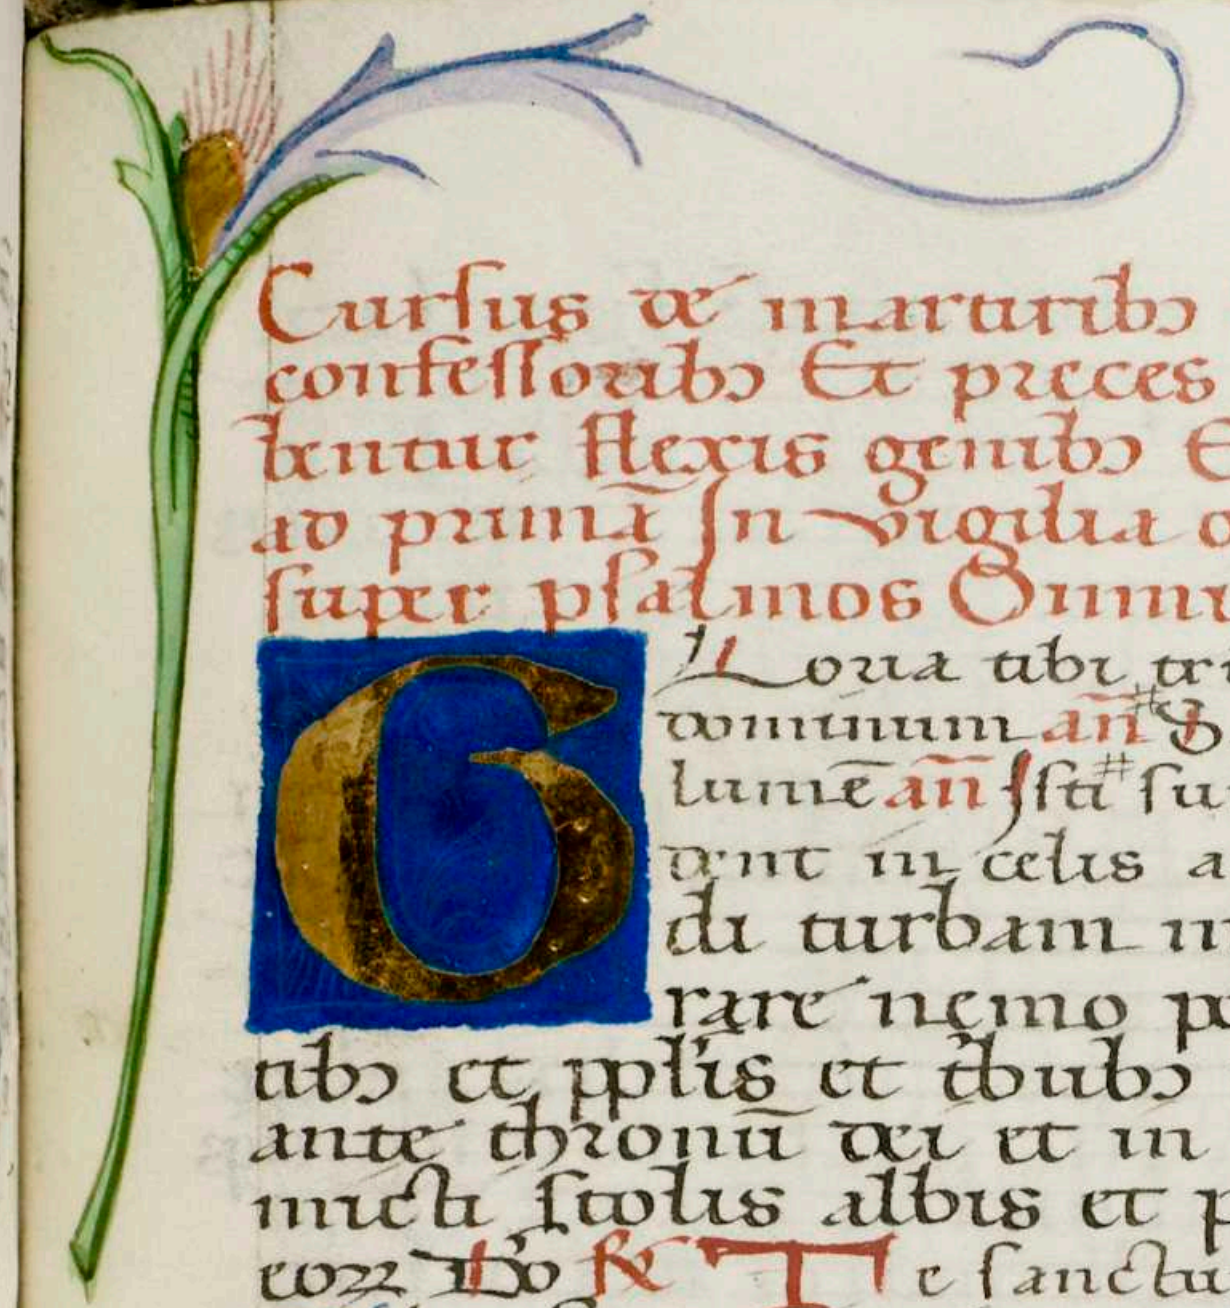 Cursus de martiribꝫ
confessoribꝫ Et pręces
bentur flexis genibꝫ E
ad primā In vigilia
super psalmos Omni
Gloria tibi tri
dominum añ S
lumē añ Isti su
dent in celis a
di turbam in
rare nęmo po
tibꝫ et pplis et tbubꝫ
ante thronū dei et in
micti stolis albis et p
eoꝝ Do ℟ Te sanctu